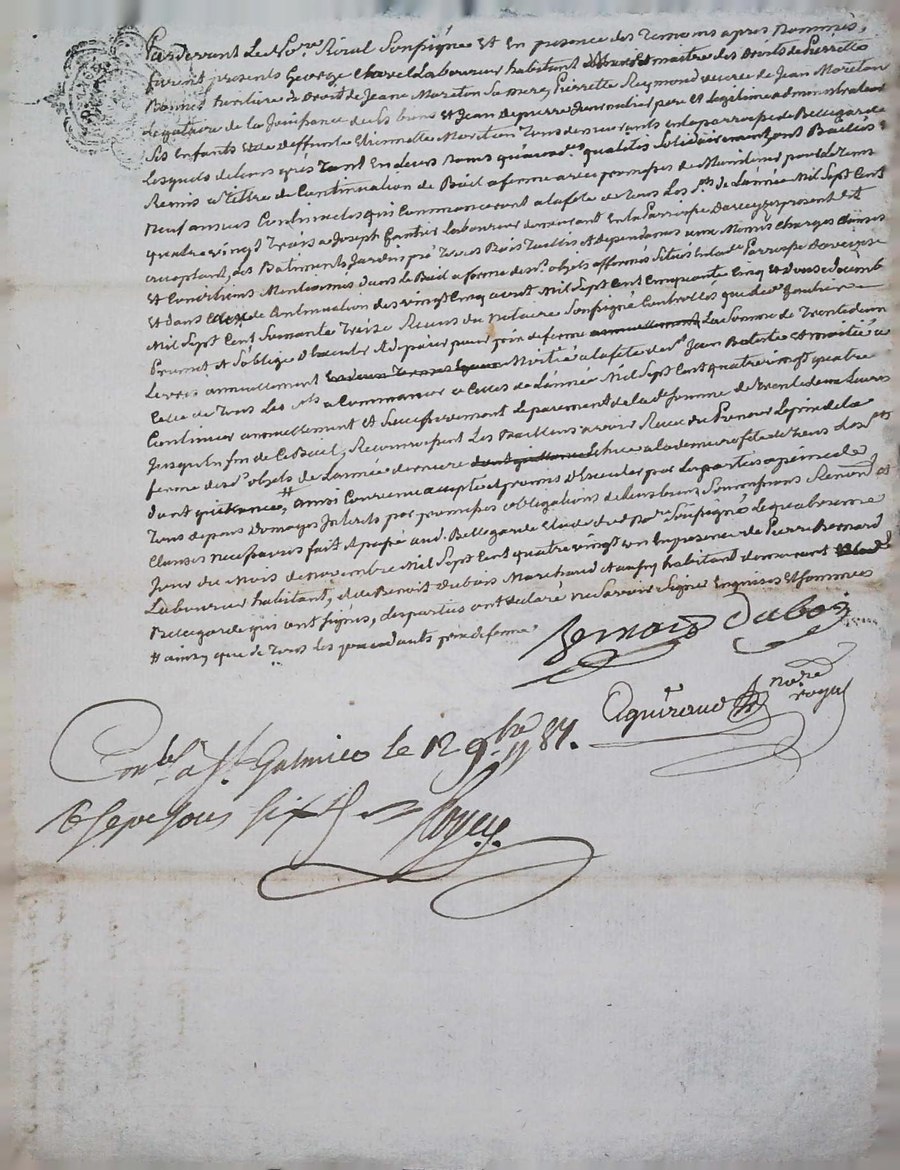 Pardevant Le No.re Royal Soussigné Et En presence des Temoins apres Nommés,
furent presents George Charel Laboureur habitant maitre des Droits de Pierrette
heritiere de Droit de Jeane Moreton Sa mere, Pierrette Reymond veuve de Jean Moreton
Legataire de la Jouissance de Ses biens Et Jean Depierre Journalier pere Et Legitime administrateur
Ses Enfants Et de deffunte Etiennette Moreton Tous demeurants En la parroisse de Bellegarde
Lesquels de Leurs grés Tant En Leurs Noms qu'aux d. qualités Solidairement, ont Baillés
Remis a Tittre de Continuation de Bail a ferme avec promesses de Maintenir pour Le Tems
Neuf années Continuelles qui Commenceront a la fete de Tous Les S.ts de L'année Mil Sept Cent
quatre vingt Trois a Joseph Gontier Laboureur demeurant En la Parroisse D'aveyze present Et
acceptant, des Batiments Jardins pré Terres Bois Taillis Et dependances aux Memes Charges Clauses
Et Conditions Mentionnées dans Le Bail a ferme des d. objets affermés Situés En lad. Parroisse Daveyze
Et dans de Continuation des vingt Cinq aout Mil Sept Cent Cinquante Cinq Et douse decembre
Mil Sept Cent Soixante Treize Recus du Notaire Soussigné Controllés que led. Gontier
Promet Et S'oblige D'executer Et de paier pour prix de ferme annuellement La Somme de Trente deux
Livres annuellement Moitié a la fete de S.t Jean Batiste Et moitié a
Celle de Tous Les S.ts a Commancer a Celles de L'année Mil Sept Cent quatre vingt quatre
Continuer annuellement Et Successivement Le paiement de lad. Somme de Trente deux Livres
Jusqu'En fin de Ce Bail, Reconnoissent Les Bailleurs avoir Recu du Preneur Le prix de la
ferme des d. objets de L'année derniere Echue a la derniere fete de Tous Les S.ts
dont quittance, # ainsi Convenu accepté Et promis d'Executer par Les parties a peine de
Tous depens Domages Interets par promesses obligations de Leurs biens Soumissions Renonc.ons Et
Clauses necessaires fait Et passé aud. Bellegarde Etude dud. No.re Soussigné, Le quatrieme
Jour du Mois de Novembre Mil Sept Cent quatre vingt un En presence de Pierre Bernard
Laboureur habitant, Et de Benoit Dubois Marchand Et habitant demeurant
Bellegarde qui ont Signés, des parties ont declaré ne Savoir Signer Enquises Et Sommées
# ainsy que de Tous Les precedants prix de ferme
Bernard Dubois
Aguiraud no.re royal
Con.lé a S.t Galmier le 12 9.bre 1781.
R. Sept Sous Six d.